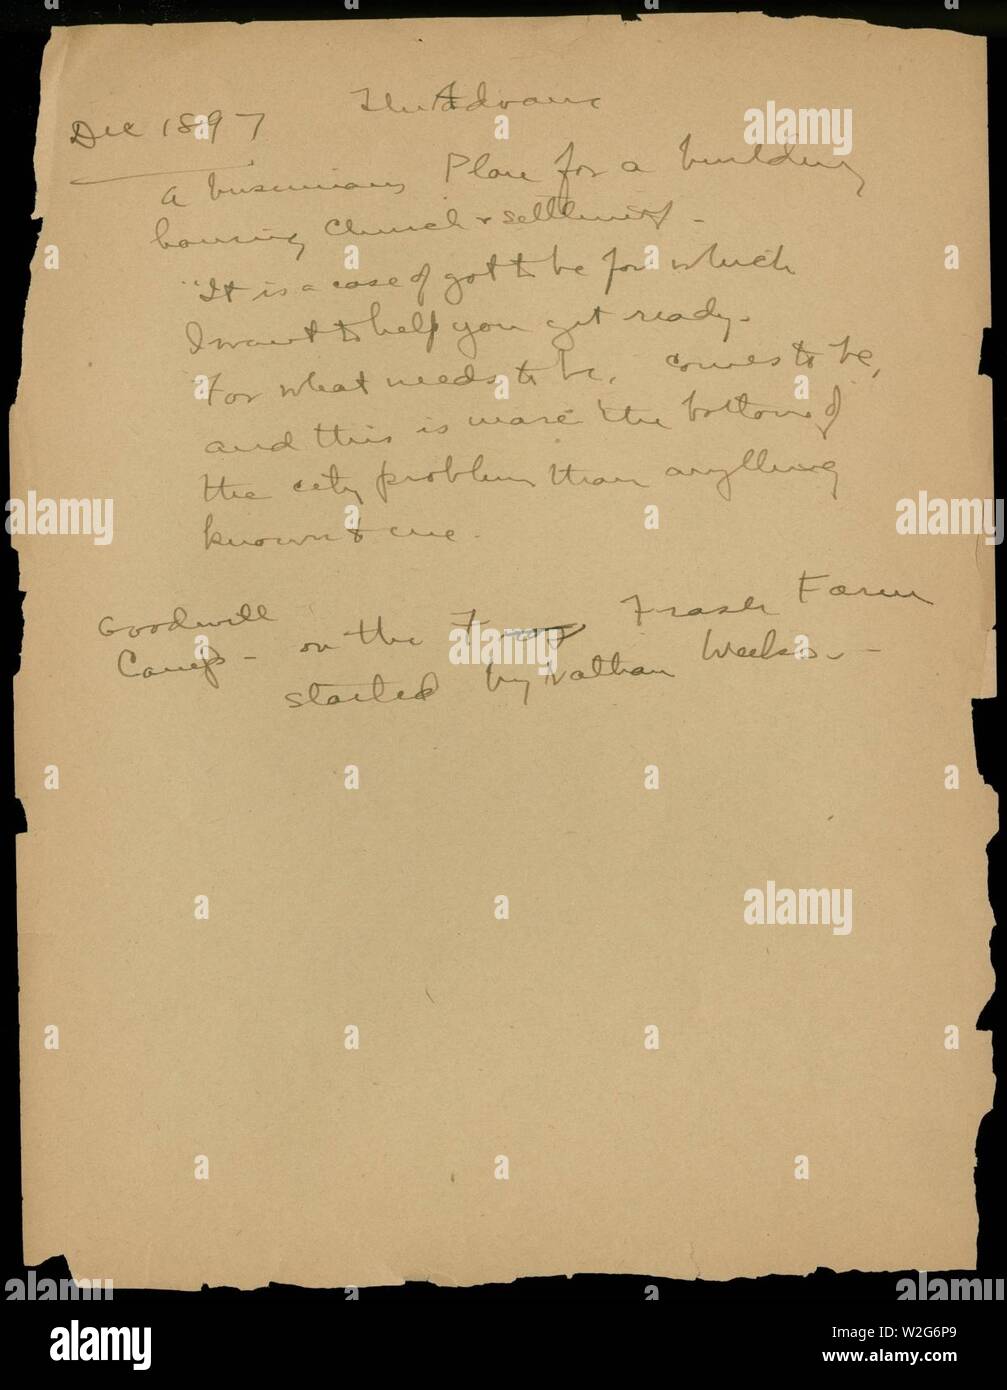 The Advanc
Dec 1897
a businessman's Plan for a building
housing Church & settlement -
"It is a case of got to be for which
I want to help you get ready -
For what needs to be, comes to be,
and this is more the bottom of
the city problem than anything
known to me.
Goodwill Camp - on the Frasch Farm
started by Nathan Weeks. -
alamy
Image ID: W2G6P9
www.alamy.com